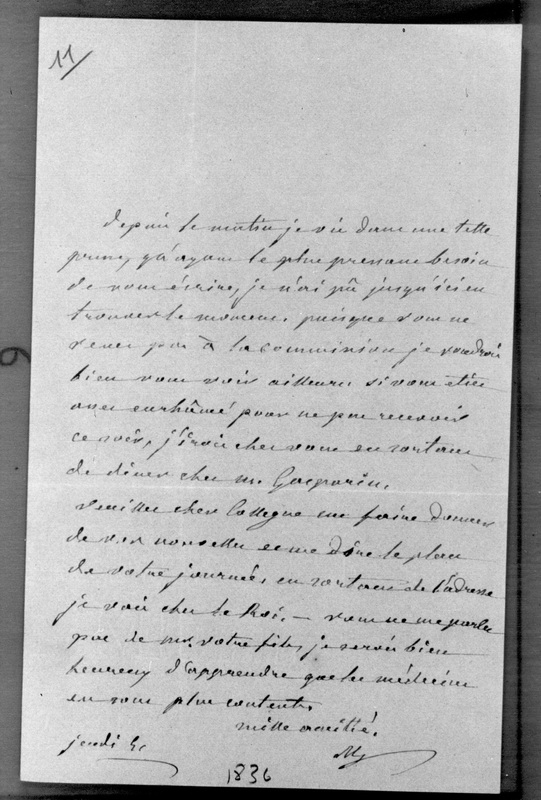 11/
depuis le matin je vis dans une telle
presse, qu'ayant le plus pressant besoin
de vous écrire, je n'ai pû jusqu'ici en
trouver le moment. puisque vous ne
venez pas à la commission je voudrois
bien vous voir ailleurs si vous étiez
assez enrhûmé pour ne pas recevoir
ce soir, j'irois chez vous en sortant
de dîner chez m. Gasparin.
veuillez cher Collegue me faire donner
de vos nouvelles et me dire le plan
de votre journée, en sortant de l'adresse
je vais chez le Roi. — vous ne me parlez
pas de mr. votre fils, je serois bien
heureux d'apprendre que les médecins
en sont plus contents.
mille amitié.
jeudi
1836
6